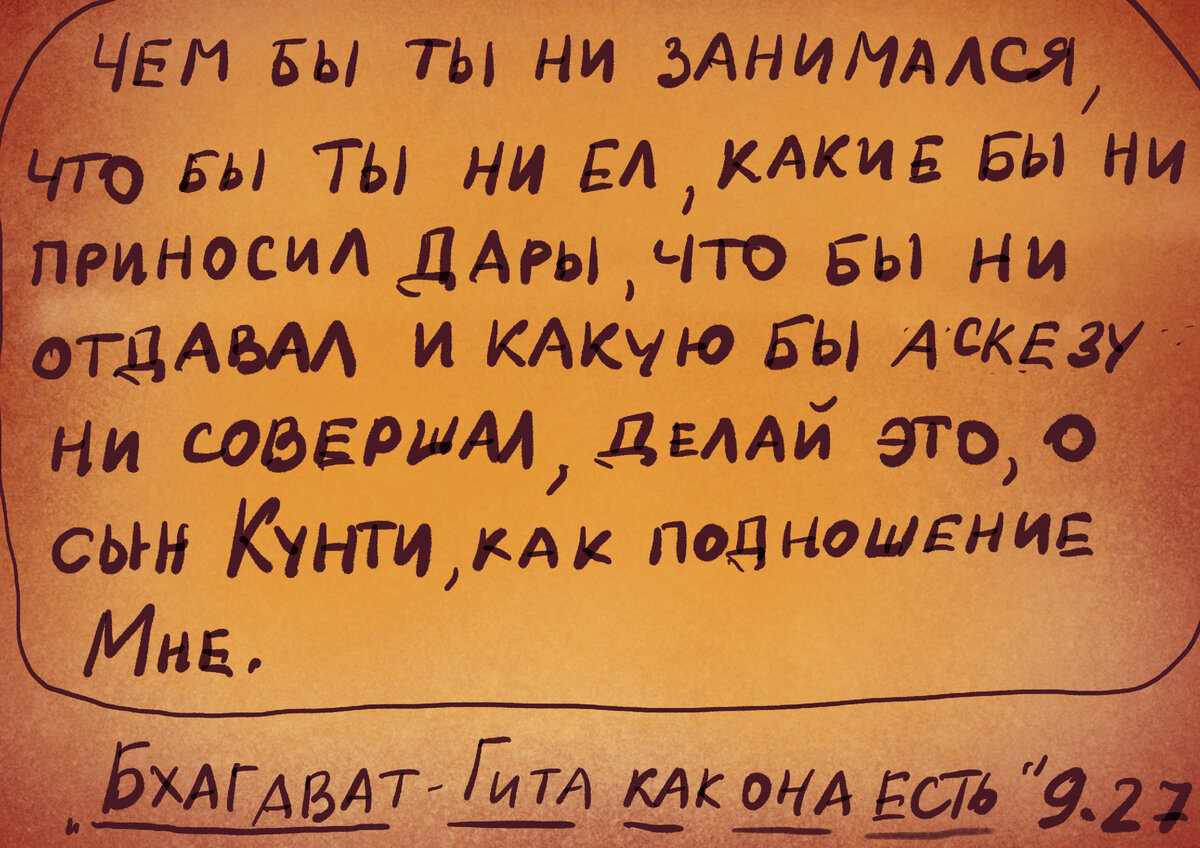 ЧЕМ БЫ ТЫ НИ ЗАНИМАЛСЯ,
ЧТО БЫ ТЫ НИ ЕЛ, КАКИЕ БЫ НИ
ПРИНОСИЛ ДАРЫ, ЧТО БЫ НИ
ОТДАВАЛ И КАКУЮ БЫ АСКЕЗУ
НИ СОВЕРШАЛ, ДЕЛАЙ ЭТО, О
СЫН КУНТИ, КАК ПОДНОШЕНИЕ
МНЕ.
„БХАГАВАТ-ГИТА КАК ОНА ЕСТЬ" 9.27